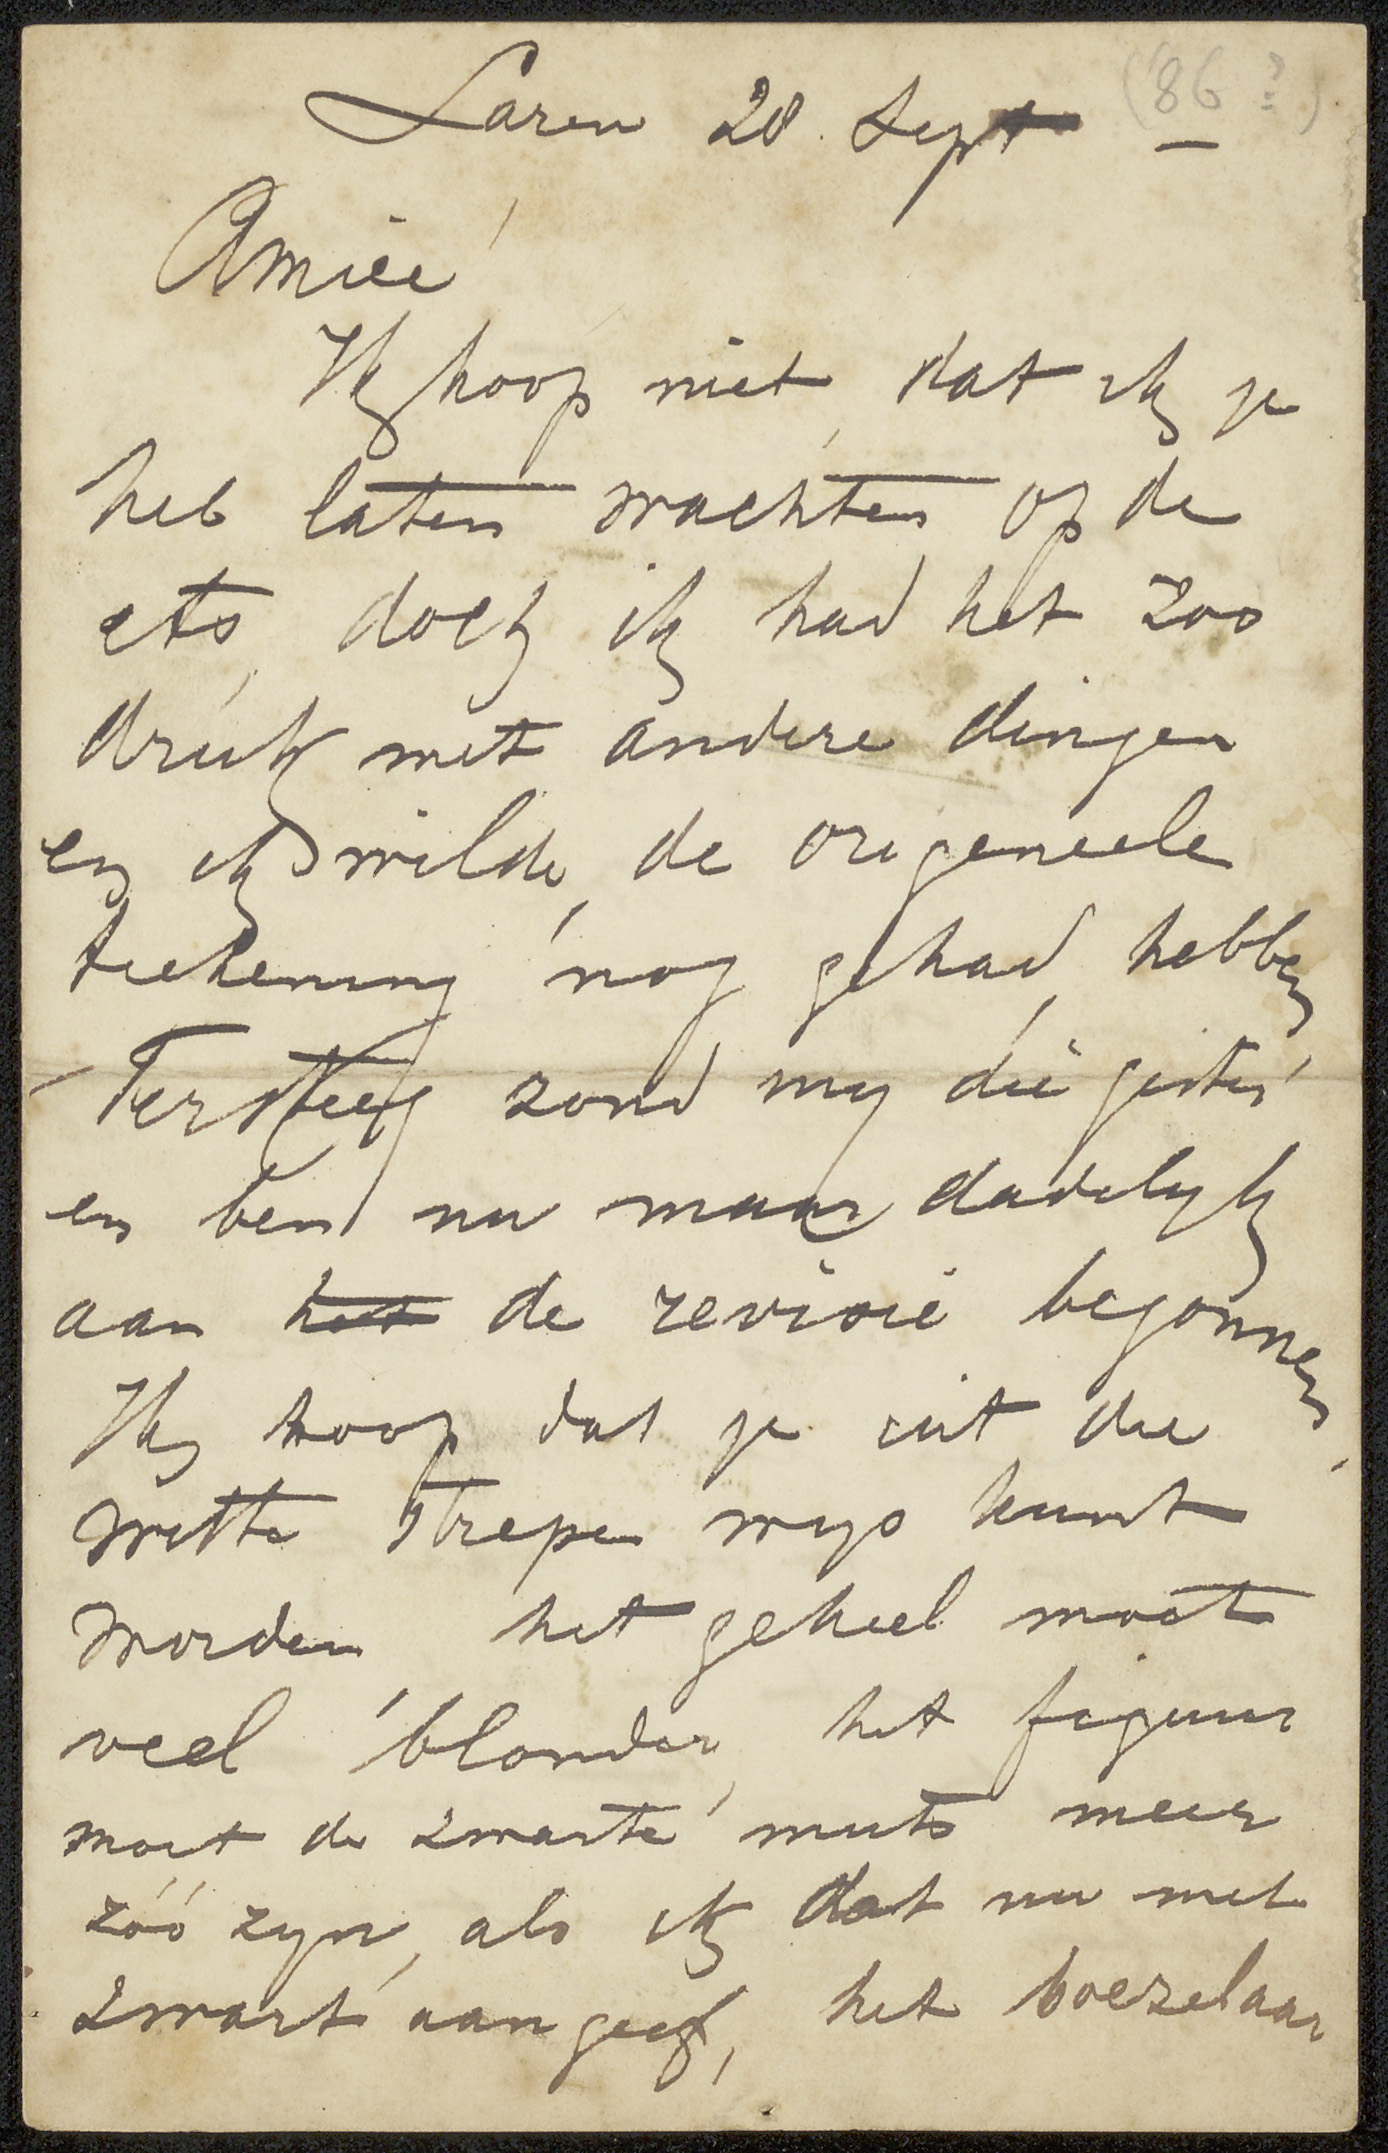 ('86?)
Laren 28 Sept —
Amice
Ik hoop niet dat ik je
heb laten wachten op de
ets, doch ik had het zoo
druk met andere dingen
en ik wilde de origeneele
teekening nog gehad hebben
Tersteeg zond my die gister
en ben nu maar dadelyk
aan het de revisie begonnen,
Ik hoop dat je uit die
witte strepen wys kunt
worden het geheel moet
veel blonder, het figuur
moet de zwarte muts meer
zóó zyn, als ik dat nu met
zwart aangeef, het boezelaar